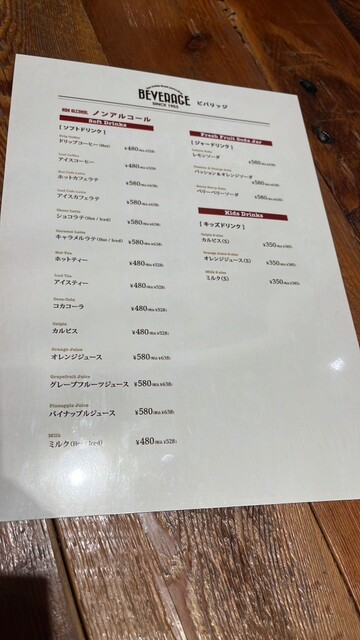 BEVERAGE ビバリッジ
SINCE 1953
NON ALCOHOL ノンアルコール
Soft Drinks
[ソフトドリンク]
Drip Coffee
ドリップコーヒー(Hot) ¥480(税込¥528)
Iced Coffee
アイスコーヒー ¥480(税込¥528)
Hot Caffe Latte
ホットカフェラテ ¥580(税込¥638)
Iced Caffe Latte
アイスカフェラテ ¥580(税込¥638)
ショコララテ(Hot / Iced) ¥580(税込¥638)
Caramel Latte
キャラメルラテ(Hot / Iced) ¥580(税込¥638)
Hot Tea
ホットティー ¥480(税込¥528)
Iced Tea
アイスティー ¥480(税込¥528)
Coca-Cola
コカコーラ ¥480(税込¥528)
Calpis
カルピス ¥480(税込¥528)
Orange Juice
オレンジジュース ¥580(税込¥638)
Grapefruit Juice
グレープフルーツジュース ¥580(税込¥638)
Pineapple Juice
パイナップルジュース ¥580(税込¥638)
Milk
ミルク(Hot / Iced) ¥480(税込¥528)
Fresh Fruit Soda Jar
[ジャードリンク]
Lemon Soda
レモンソーダ ¥580(税込¥638)
パッション&オレンジソーダ ¥580(税込¥638)
ベリーベリーソーダ ¥580(税込¥638)
Kids Drinks
[キッズドリンク]
Calpis S-size
カルピス(S) ¥350(税込¥385)
Orange Juice S-size
オレンジジュース(S) ¥350(税込¥385)
Milk S-size
ミルク(S) ¥350(税込¥385)